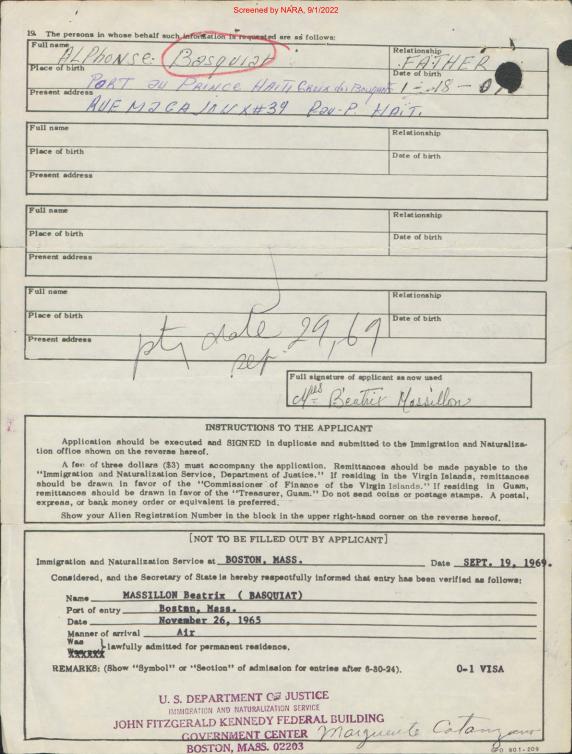 Screened by NARA, 9/1/2022
19. The persons in whose behalf such information is requested are as follows:
Full name
ALPHONSE. Basquiat
Relationship
FATHER
Place of birth
PORT au PRINCE HAITI Croix des Bouquet
Date of birth
1-18-0
Present address
RUE #39 P. HAITI.
Full name
Relationship
Place of birth
Date of birth
Present address
Full name
Relationship
Place of birth
Date of birth
Present address
Full name
Relationship
Place of birth
Date of birth
Present address
pty date 29, 69
sep.
Full signature of applicant as now used
Beatrix Massillon
INSTRUCTIONS TO THE APPLICANT
Application should be executed and SIGNED in duplicate and submitted to the Immigration and Naturaliza-
tion office shown on the reverse hereof.
A fee of three dollars ($3) must accompany the application. Remittances should be made payable to the
"Immigration and Naturalization Service, Department of Justice." If residing in the Virgin Islands, remittances
should be drawn in favor of the "Commissioner of Finance of the Virgin Islands." If residing in Guam,
remittances should be drawn in favor of the "Treasurer, Guam." Do not send coins or postage stamps. A postal,
express, or bank money order or equivalent is preferred.
Show your Alien Registration Number in the block in the upper right-hand corner on the reverse hereof.
[NOT TO BE FILLED OUT BY APPLICANT]
Immigration and Naturalization Service at BOSTON, MASS. Date SEPT. 19, 1969.
Considered, and the Secretary of State is hereby respectfully informed that entry has been verified as follows:
Name MASSILLON Beatrix ( BASQUIAT)
Port of entry Boston, Mass.
Date November 26, 1965
Manner of arrival Air
Was
lawfully admitted for permanent residence.
REMARKS: (Show "Symbol" or "Section" of admission for entries after 6-30-24). O-1 VISA
U. S. DEPARTMENT OF JUSTICE
IMMIGRATION AND NATURALIZATION SERVICE
JOHN FITZGERALD KENNEDY FEDERAL BUILDING
GOVERNMENT CENTER Marguerite Catanzano
BOSTON, MASS. 02203
GPO 901-209